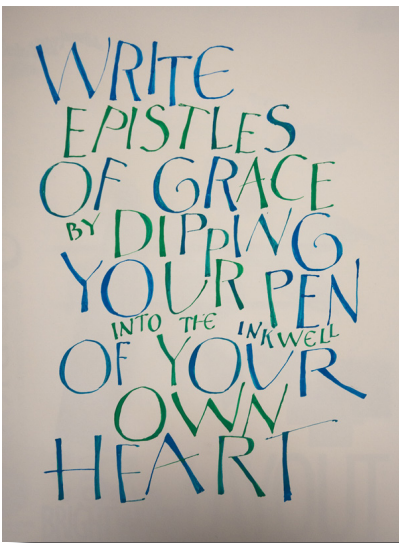 WRITE
EPISTLES
OF GRACE
BY DIPPING
YOUR PEN
INTO THE INKWELL
OF YOUR
OWN
HEART